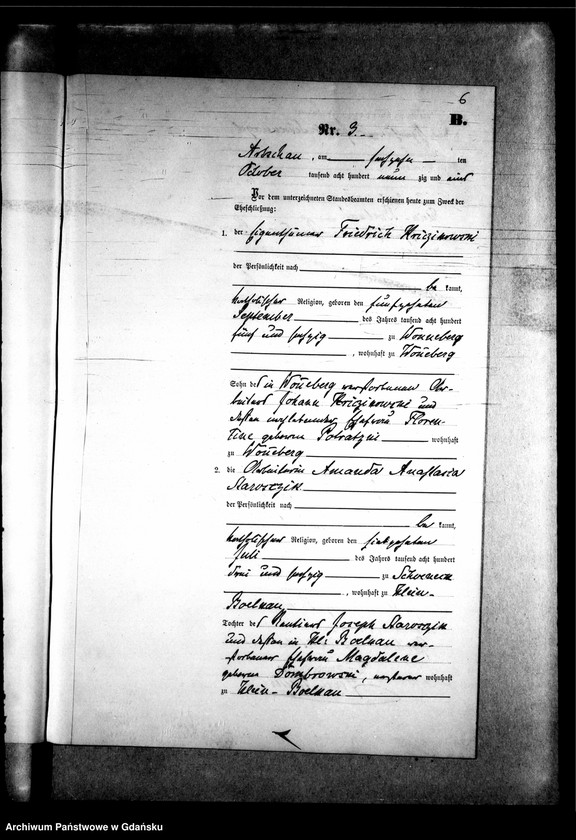 6
B.
Nr. 3.
am sechszehn ten
October tausend acht hundert neun zig und eins
Vor dem unterzeichneten Standesbeamten erschienen heute zum Zweck der
Eheschließung:
1. der Eigenthümer Friedrich
der Persönlichkeit nach
be kannt,
katholischer Religion, geboren den fünfzehnten
September des Jahres tausend acht hundert
fünf und sechzig zu Wonneberg
, wohnhaft zu Woneberg
Sohn des in Woneberg verstorbenen Ar-
beiters Johann und
dessen Ehefrau Floren-
tine geborene wohnhaft
zu Woneberg
2. die Arbeiterin Amanda Anastasia
der Persönlichkeit nach
be kannt,
katholischer Religion, geboren den siebzehnten
Juli des Jahres tausend acht hundert
drei und sechzig zu Schoeneck
, wohnhaft zu Klein-
Boelkau
Tochter des Rentiers Joseph
und dessen in Kl: Boelkau ver-
storbener Ehefrau Magdalene
geborene Dombrowski, wohnhaft
zu Klein-Boelkau
Archiwum Państwowe w Gdańsku